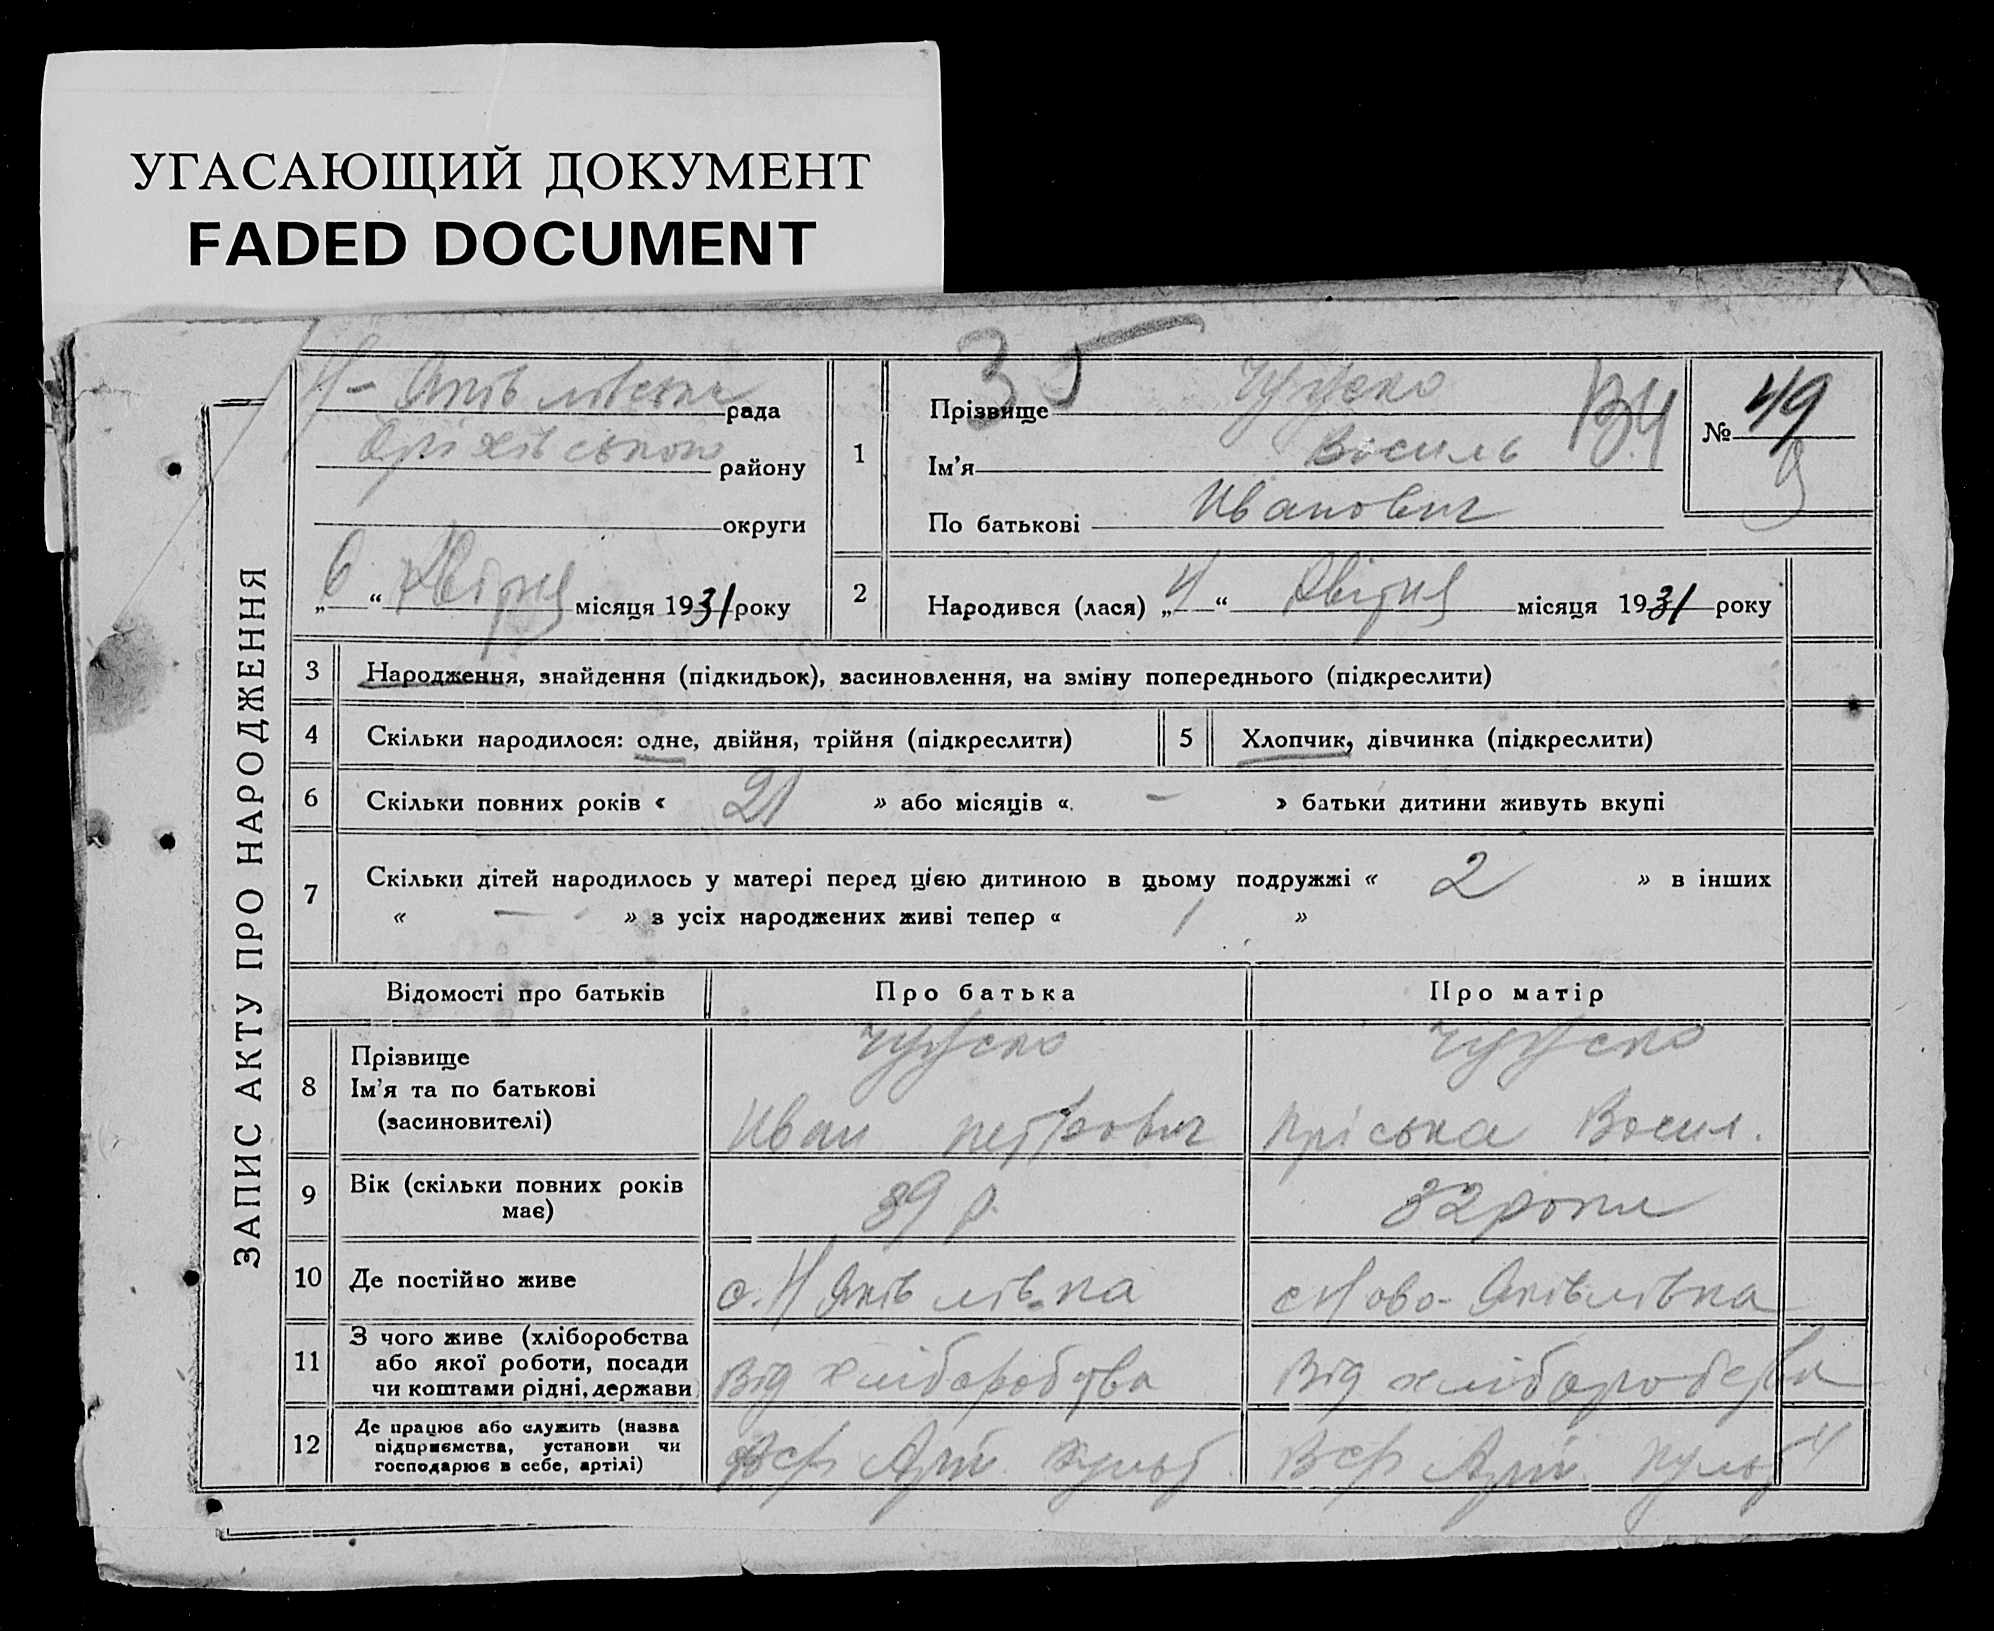 УГАСАЮЩИЙ ДОКУМЕНТ
FADED DOCUMENT
35
ЗАПИС АКТУ ПРО НАРОДЖЕННЯ
Н-Яківлівська рада
Оріхівського району
округи
„6“ Квітня місяця 1931 року
1
Прізвище
Ім’я Василь
По батькові Иванович
ВЧ
№ 49
2
Народився (лася) „4“ Квітня місяця 1931 року
3 Народження, знайдення (підкидьок), засиновлення, на зміну попереднього (підкреслити)
4 Скільки народилося: одне, двійня, трійня (підкреслити)
5 Хлопчик, дівчинка (підкреслити)
6 Скільки повних років « 21 » або місяців « - » батьки дитини живуть вкупі
7 Скільки дітей народилось у матері перед цією дитиною в цьому подружжі « 2 » в інших
« — » з усіх народжених живі тепер « 1 »
Відомості про батьків Про батька Про матір
8 Прізвище
Ім’я та по батькові
(засиновителі)
Иван Петрович
Пріська Васил.
9 Вік (скільки повних років
має)
39 р.
32 роки
10 Де постійно живе
с. Н Яківлівка
с Ново-Яківлівка
11 З чого живе (хліборобства
або якої роботи, посади
чи коштами рідні, держави
Від хліборобства
Від хліборобства
12 Де працює або служить (назва
підприємства, установи чи
господарює в себе, артілі)